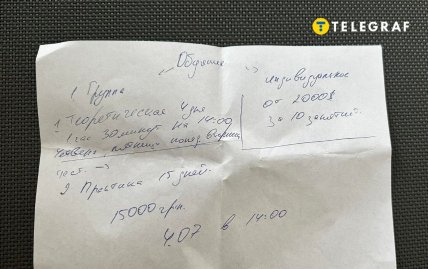 TELEGRAF
Обучение
1 Группа
индивидуальное
от 2000$
за 10 занятий.
1 Теоретическая 4 дня
1 час 30 минут на 14:00
четверг пятница понед вторник
2 Практика 15 дней.
15000 грн.
4.07 в 14:00